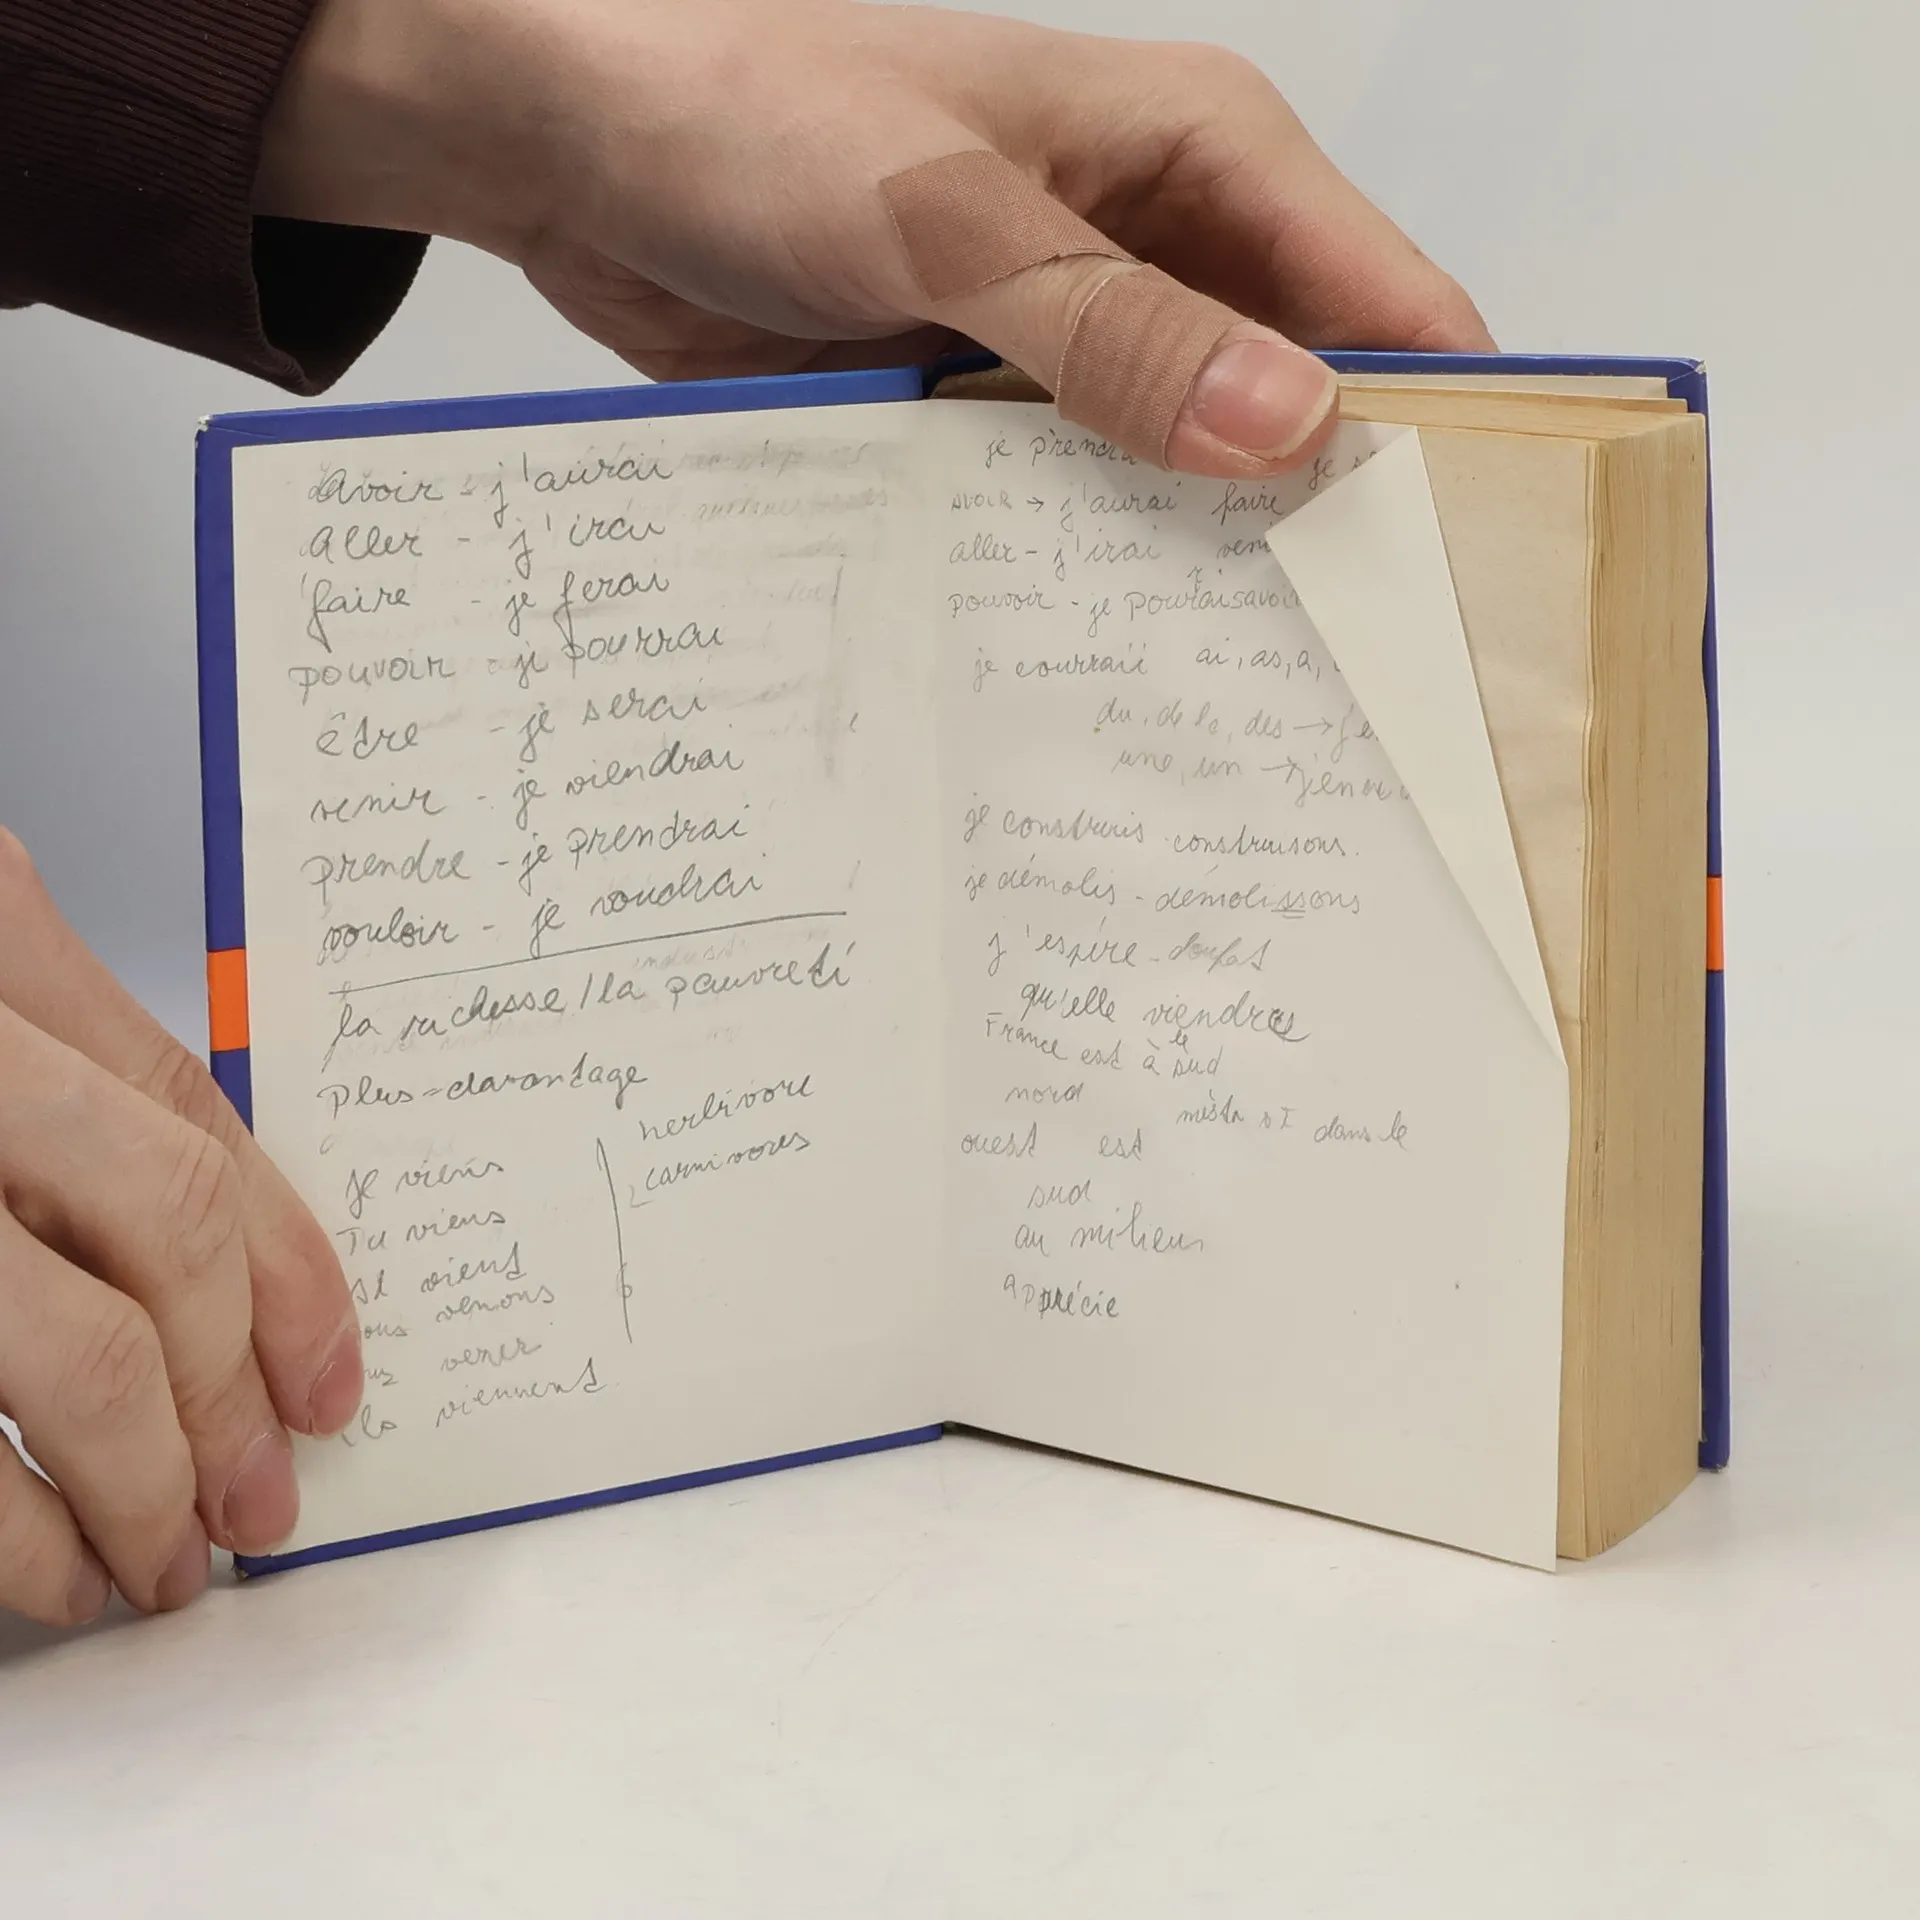 avoir - j'aurai
aller - j'irai
faire - je ferai
pouvoir - je pourrai
être - je serai
venir - je viendrai
prendre - je prendrai
vouloir - je voudrai
la richesse / la pauvreté
plus = davantage
herbivore
carnivores
je viens
Tu viens
il viens
venons
venez
viennent
je prendra
avoir → j'aurai faire
aller - j'irai veni
pouvoir - je pourrai savoir
je courraii ai, as, a,
du, de la, des →
une, un →
je construis - construisons.
je démolis - démolissons
j'espère -
qu'elle viendra
France est à le sud
nord
dans le
ouest est
sud
au milieu
apprécie